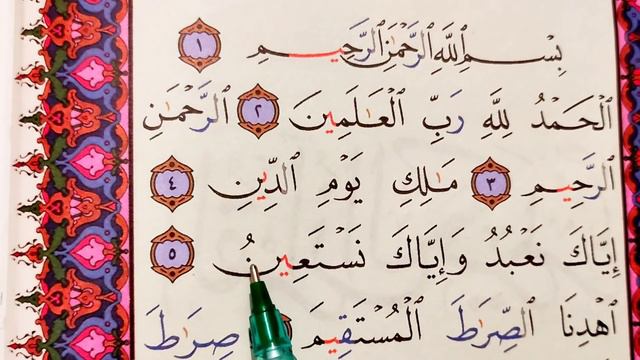 بِسْمِ ٱللَّهِ ٱلرَّحْمَٰنِ ٱلرَّحِيمِ ١
ٱلْحَمْدُ لِلَّهِ رَبِّ ٱلْعَٰلَمِينَ ٢ ٱلرَّحْمَٰنِ
ٱلرَّحِيمِ ٣ مَٰلِكِ يَوْمِ ٱلدِّينِ ٤
إِيَّاكَ نَعْبُدُ وَإِيَّاكَ نَسْتَعِينُ ٥
ٱهْدِنَا ٱلصِّرَٰطَ ٱلْمُسْتَقِيمَ صِرَٰطَ